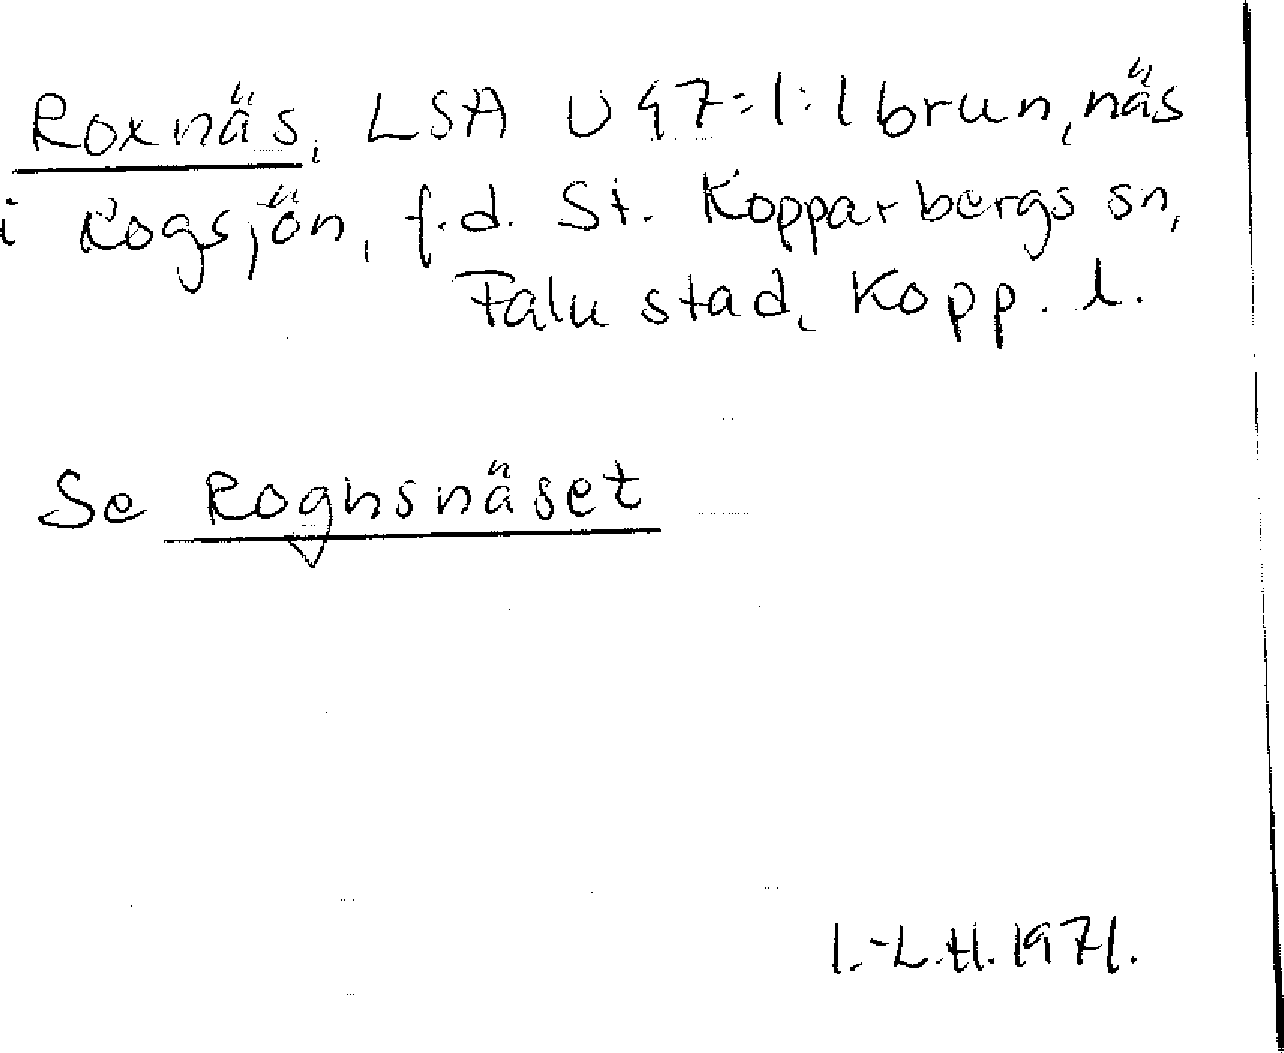 Roxnäs, LSA U47:1:1 brun, näs
i Rogsjön, f.d. St. Kopparbergs sn,
Falu stad, Kopp. l.
Se Roghsnäset
I.-L.H. 1971.